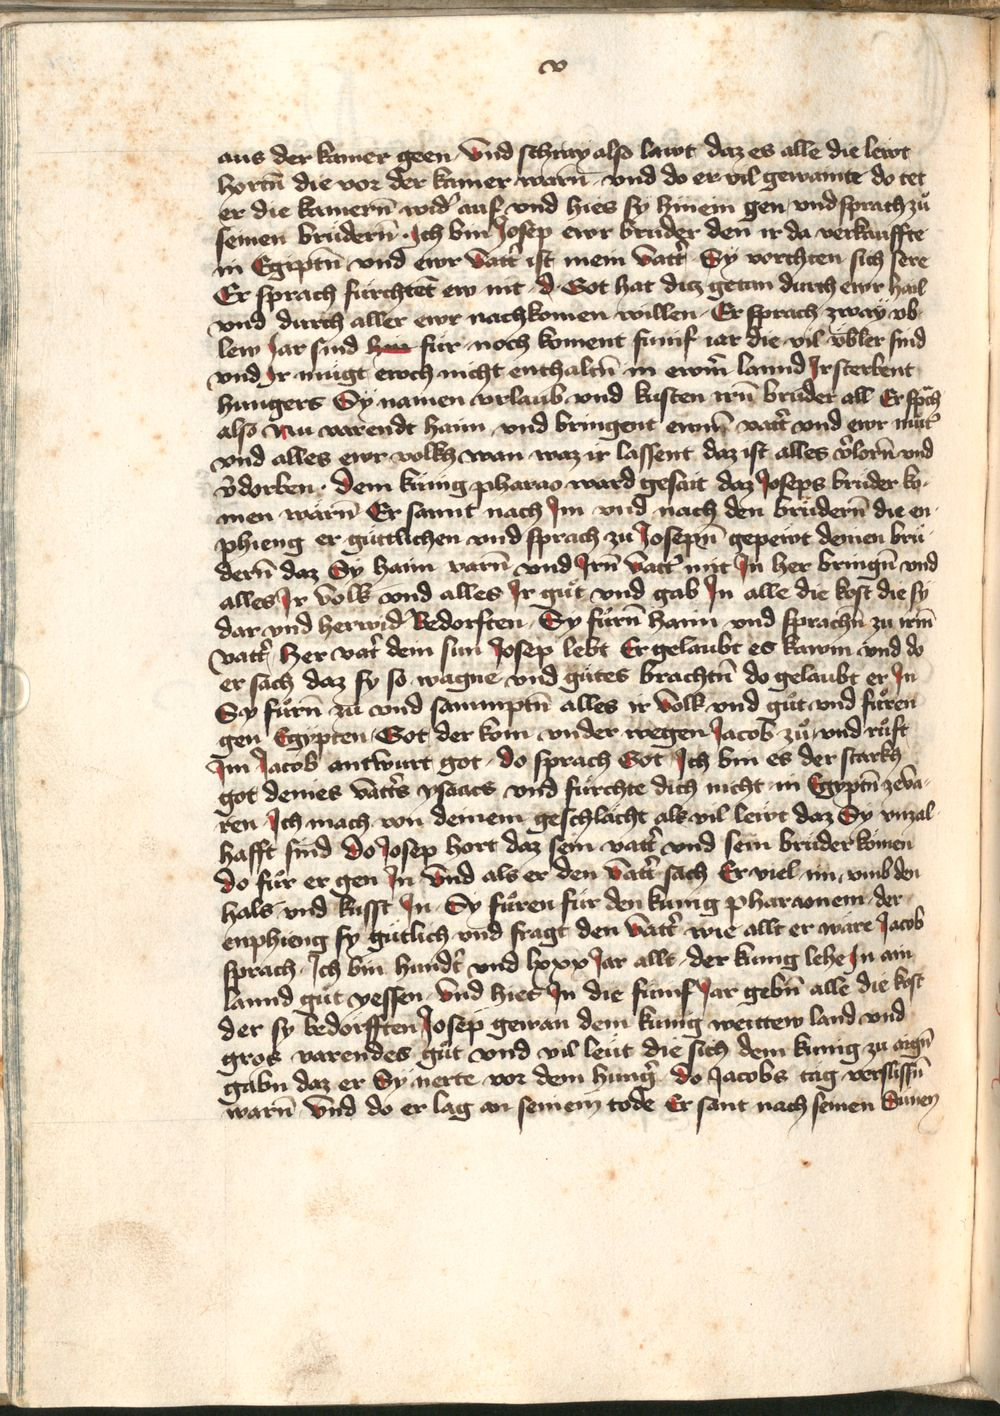 v
aus der kamer geen vnd schray also lawt daz es alle die lewt
hortn̄ die vor der kamer warn̄ vnd do er vil gewainte do tet
er die kamern̄ wid᷑ auf vnd hies sy hinein gen vnd sprach zů
seinen brüdern̄ Ich bin Josep ewr bruder den ir da verkauffte
in Egiptn̄ vnd ewr vatt᷑ ist mein vatt᷑ Sy vorchten sich sere
Er sprach fürchtet ew nit d Got hat ditz getan durch ewr hail
vnd durch aller ewr nachkomen willen Er sprach zway vb
lew Jar sind für noch koment fünif iar die vil vbler sind
vnd Ir mügt ewch nicht enthaltn̄ in ewrm̄ lannd Ir sterbent
hungers Sy namen vrlaub vnd kusten irn̄ bruder all Er sp̄ch
also Nu varendt haim vnd bringent ewrn̄ vatt᷑ vnd ewr můt᷑
vnd alles ewr volkh wan waz ir lassent daz ist alles v᷑lorn̄ vnd
v᷑dorben Dem künig pharao ward gesait daz Joseps brüder ko
men wärn̄ Er sannt nach Im vnd nach den brüdern̄ die en
phieng er güttlichen vnd sprach zu Josepn̄ gepewt deinen brü
dern̄ daz Sy haim varn̄ vnd Irn̄ vatt᷑ mit In her bringn̄ vnd
alles Ir volk vnd alles Ir gůt vnd gab In alle die kost die sy
dar vnd herwid᷑ Bedorften Sy fůrn̄ haim vnd sprachn̄ zu irm̄
vatt᷑ Her vat᷑ dein sun Josep lebt Er gelaubt es kawm vnd do
er sach daz sy so wagne vnd gütes brachtn̄ do gelaubt er In
Sy fůrn̄ zů vnd sammptn̄ alles ir volk vnd gůt vnd fůren
gen Egypten Got der kom vnder wegen Jacob zů vnd růft
Im Jacob antwurt got do sprach Got Ich bin es der starkh
got deines vatt᷑s ysaacs vnd fürchte dich nicht in Egyptn̄ zeva
ren Ich mach von deinem geschlächt alz vil lewt daz Sy vnzal
hafft sind Do Josep hort daz sein vatt᷑ vnd sein brüder komen
do fůr er gen In vnd als er den vatt᷑ sach Er viel im vmb den
hals vnd kusst In Sy fůren für den künig pharaonem der
enphieng sy gütlich vnd fragt den vatt᷑ wie allt er wäre Jacob
sprach Ich bin hundt᷑ vnd lxxx Jar allt der künig lehe In ain
lannd gůt yessen vnd hies In die fünif Jar gebn̄ alle die kost
der sy bedörfften Josep gewan dem künig weittew land vnd
gros varendes gůt vnd vil leüt die sich dem künig zu aign̄
gabn̄ daz er Sy nerte vor dem hung᷑ Do Jacobs tag verslissn̄
warn̄ vnd do er lag an seinem tode Er sant nach seinen Sunen